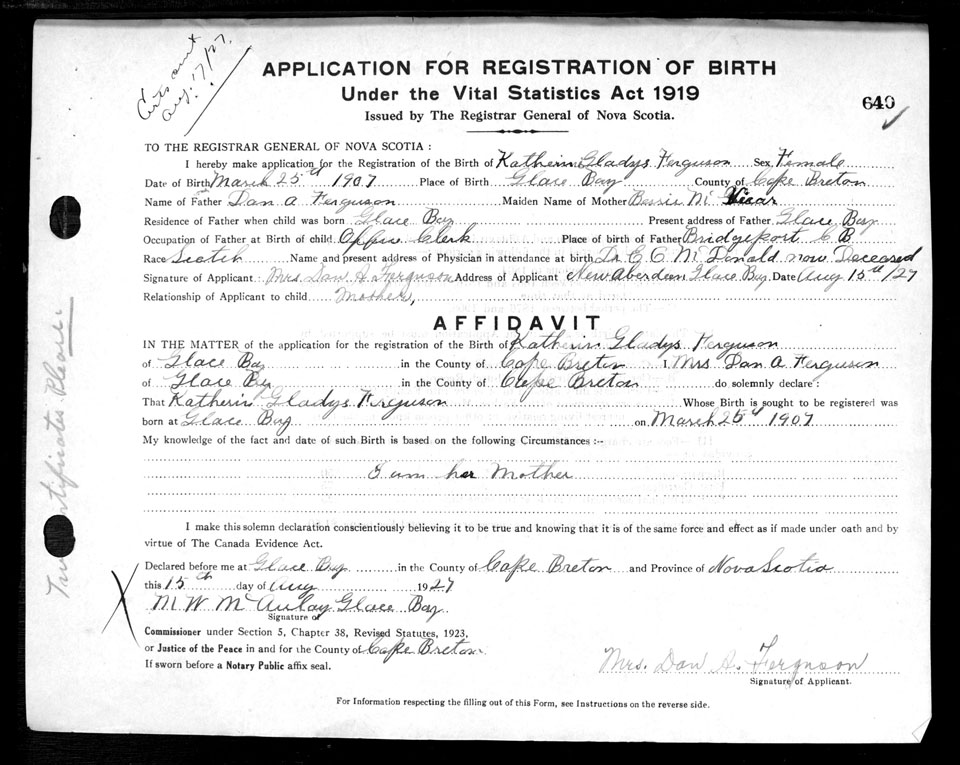 Certs sent
Aug. 17/27.
APPLICATION FOR REGISTRATION OF BIRTH
Under the Vital Statistics Act 1919
Issued by The Registrar General of Nova Scotia.
640
TO THE REGISTRAR GENERAL OF NOVA SCOTIA :
I hereby make application for the Registration of the Birth of Katherine Gladys Ferguson Sex Female
Date of Birth March 25th 1907 Place of Birth Glace Bay County of Cape Breton
Name of Father Dan A Ferguson Maiden Name of Mother Bessie Mc Vicar
Residence of Father when child was born Glace Bay Present address of Father Glace Bay
Occupation of Father at Birth of child Office Clerk Place of birth of Father Bridgeport C B
Race Scotch Name and present address of Physician in attendance at birth Dr C O McDonald now Deceased
Signature of Applicant Mrs Dan A. Ferguson Address of Applicant New Aberdeen Glace Bay Date Aug 15th/27
Relationship of Applicant to child Mother,
AFFIDAVIT
IN THE MATTER of the application for the registration of the Birth of Katherin Gladys Ferguson
of Glace Bay in the County of Cape Breton I, Mrs Dan A Ferguson
of Glace Bay in the County of Cape Breton do solemnly declare :
That Katherin Gladys Ferguson Whose Birth is sought to be registered was
born at Glace Bay on March 25th 1907
My knowledge of the fact and date of such Birth is based on the following Circumstances :--
I am her Mother
I make this solemn declaration conscientiously believing it to be true and knowing that it is of the same force and effect as if made under oath and by
virtue of The Canada Evidence Act.
Declared before me at Glace Bay in the County of Cape Breton and Province of Nova Scotia
this 15th day of Aug 1927
M W McAulay Glace Bay
Signature of
Commissioner under Section 5, Chapter 38, Revised Statutes, 1923,
or Justice of the Peace in and for the County of Cape Breton
If sworn before a Notary Public affix seal.
Mrs. Dan A. Ferguson
Signature of Applicant.
For Information respecting the filling out of this Form, see Instructions on the reverse side.
Please